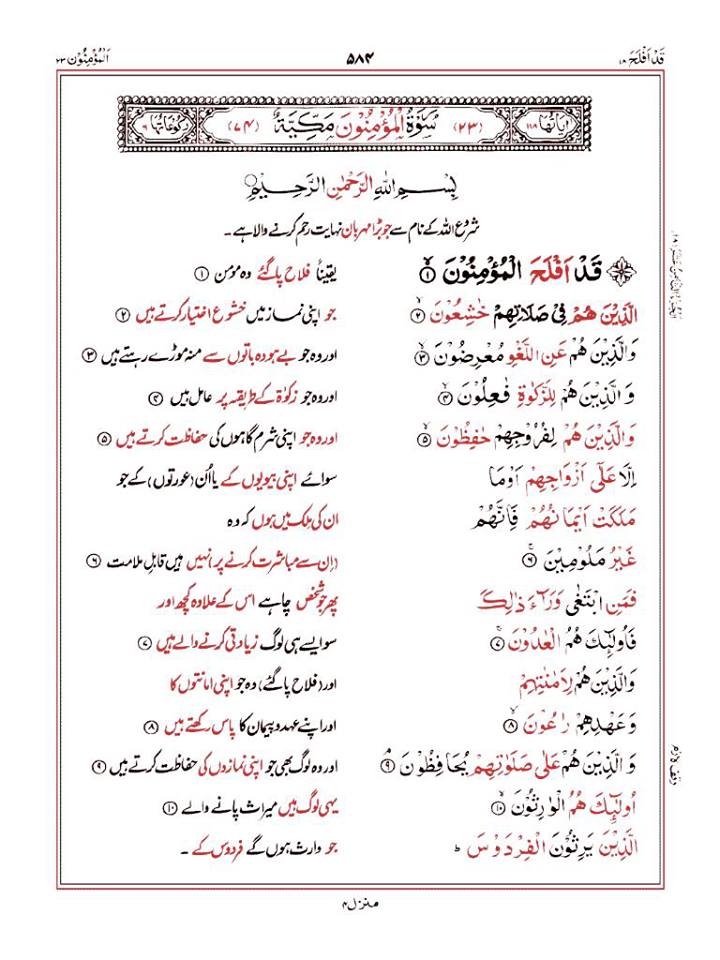 قَدْ اَفْلَحَ ۱۸
۵۸۴
اَلْمُؤْمِنُوْن ۲۳
اٰيَاتُهَا ۱۱۸
(۲۳) سُوْرَةُ الْمُؤْمِنُوْنَ مَكِّيَّةٌ (۷۴)
رُكُوْعَاتُهَا ۶
بِسْمِ اللهِ الرَّحْمٰنِ الرَّحِيْمِ
شروع اللہ کے نام سے جو بڑا مہربان نہایت رحم کرنے والا ہے۔
قَدْ اَفْلَحَ الْمُؤْمِنُوْنَ ۱ یقیناً فلاح پا گئے وہ مؤمن ۱
الَّذِيْنَ هُمْ فِيْ صَلَاتِهِمْ خٰشِعُوْنَ ۲ جو اپنی نماز میں خشوع اختیار کرتے ہیں ۲
وَالَّذِيْنَ هُمْ عَنِ اللَّغْوِ مُعْرِضُوْنَ ۳ اور وہ جو بے ہودہ باتوں سے منہ موڑے رہتے ہیں ۳
وَالَّذِيْنَ هُمْ لِلزَّكٰوةِ فٰعِلُوْنَ ۴ اور وہ جو زکوٰۃ کے طریقہ پر عامل ہیں ۴
وَالَّذِيْنَ هُمْ لِفُرُوْجِهِمْ حٰفِظُوْنَ ۵ اور وہ جو اپنی شرم گاہوں کی حفاظت کرتے ہیں ۵
اِلَّا عَلٰٓى اَزْوَاجِهِمْ اَوْ مَا سوائے اپنی بیویوں کے یا اُن (عورتوں) کے جو
مَلَكَتْ اَيْمَانُهُمْ فَاِنَّهُمْ ان کی مِلک میں ہوں کہ وہ
غَيْرُ مَلُوْمِيْنَ ۶ (اِن سے مباشرت کرنے پر) نہیں ہیں قابلِ ملامت ۶
فَمَنِ ابْتَغٰى وَرَآءَ ذٰلِكَ پھر جو شخص چاہے اس کے علاوہ کچھ اور
فَاُولٰٓئِكَ هُمُ الْعٰدُوْنَ ۷ سو ایسے ہی لوگ زیادتی کرنے والے ہیں ۷
وَالَّذِيْنَ هُمْ لِاَمٰنٰتِهِمْ اور (فلاح پا گئے) وہ جو اپنی امانتوں کا
وَعَهْدِهِمْ رٰعُوْنَ ۸ اور اپنے عہد و پیمان کا پاس رکھتے ہیں ۸
وَالَّذِيْنَ هُمْ عَلٰى صَلَوٰتِهِمْ يُحَافِظُوْنَ ۹ اور وہ لوگ بھی جو اپنی نمازوں کی حفاظت کرتے ہیں ۹
اُولٰٓئِكَ هُمُ الْوٰرِثُوْنَ ۱۰ یہی لوگ ہیں میراث پانے والے ۱۰
الَّذِيْنَ يَرِثُوْنَ الْفِرْدَوْسَ ط جو وارث ہوں گے فردوس کے ۔
وقف لازم
منزل ۴